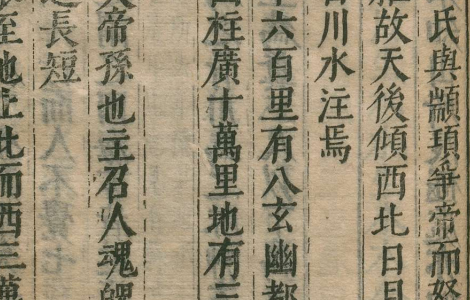 氏與顓頊爭帝而怒
故天後傾西北日月
百川水注焉
千六百里有八玄幽都
柱廣十萬里地有三
天帝孫也主召人魂魄
長短
至地止此而西三萬